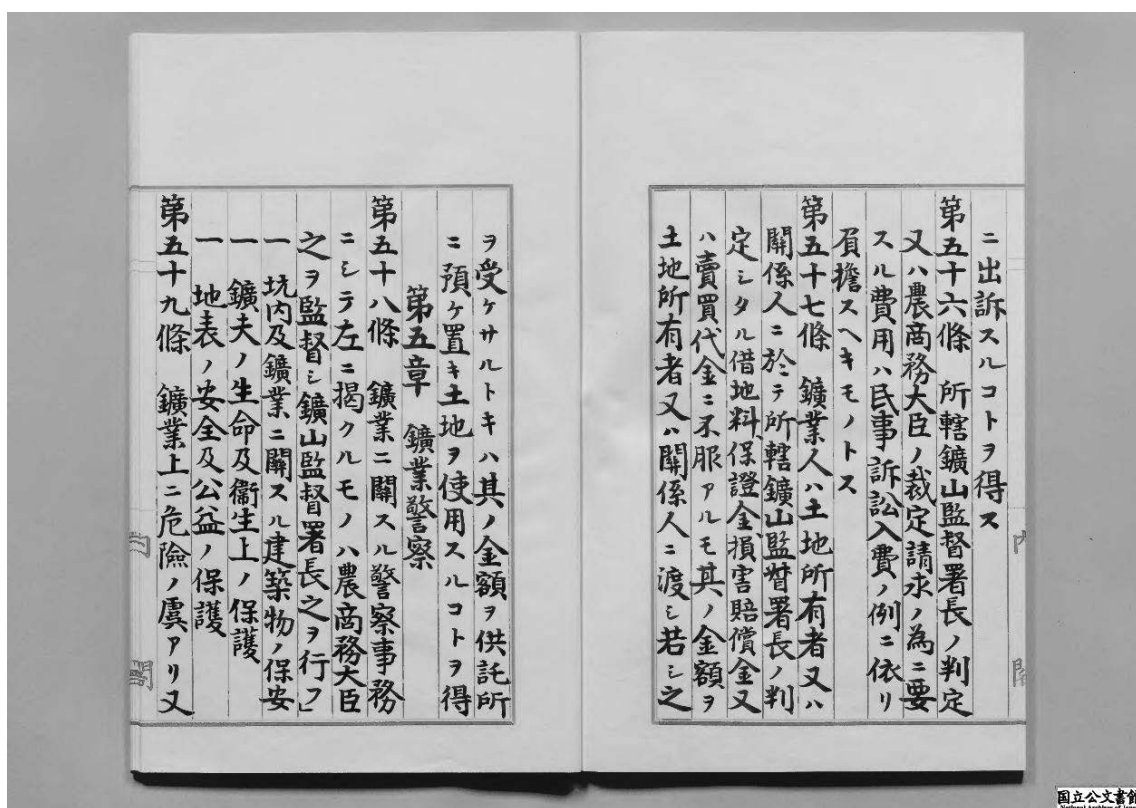 ニ出訴スルコトヲ得ス
第五十六條　所轄鑛山監督署長ノ判定
又ハ農商務大臣ノ裁定請求ノ為ニ要
スル費用ハ民事訴訟入費ノ例ニ依リ
負擔スヘキモノトス
第五十七條　鑛業人ハ土地所有者又ハ
關係人ニ於テ所轄鑛山監督署長ノ判
定シタル借地料、保證金、損害賠償金又
ハ賣買代金ニ不服アルモ其ノ金額ヲ
土地所有者又ハ關係人ニ渡シ若シ之
ヲ受ケサルトキハ其ノ金額ヲ供託所
ニ預ケ置キ土地ヲ使用スルコトヲ得
第五章　鑛業警察
第五十八條　鑛業ニ關スル警察事務
ニシテ左ニ揭クルモノハ農商務大臣
之ヲ監督シ鑛山監督署長之ヲ行フ」
一　坑内及鑛業ニ關スル建築物ノ保安
一　鑛夫ノ生命及衞生上ノ保護
一　地表ノ安全及公益ノ保護
第五十九條　鑛業上ニ危險ノ虞アリ又
内閣
内閣
国立公文書館